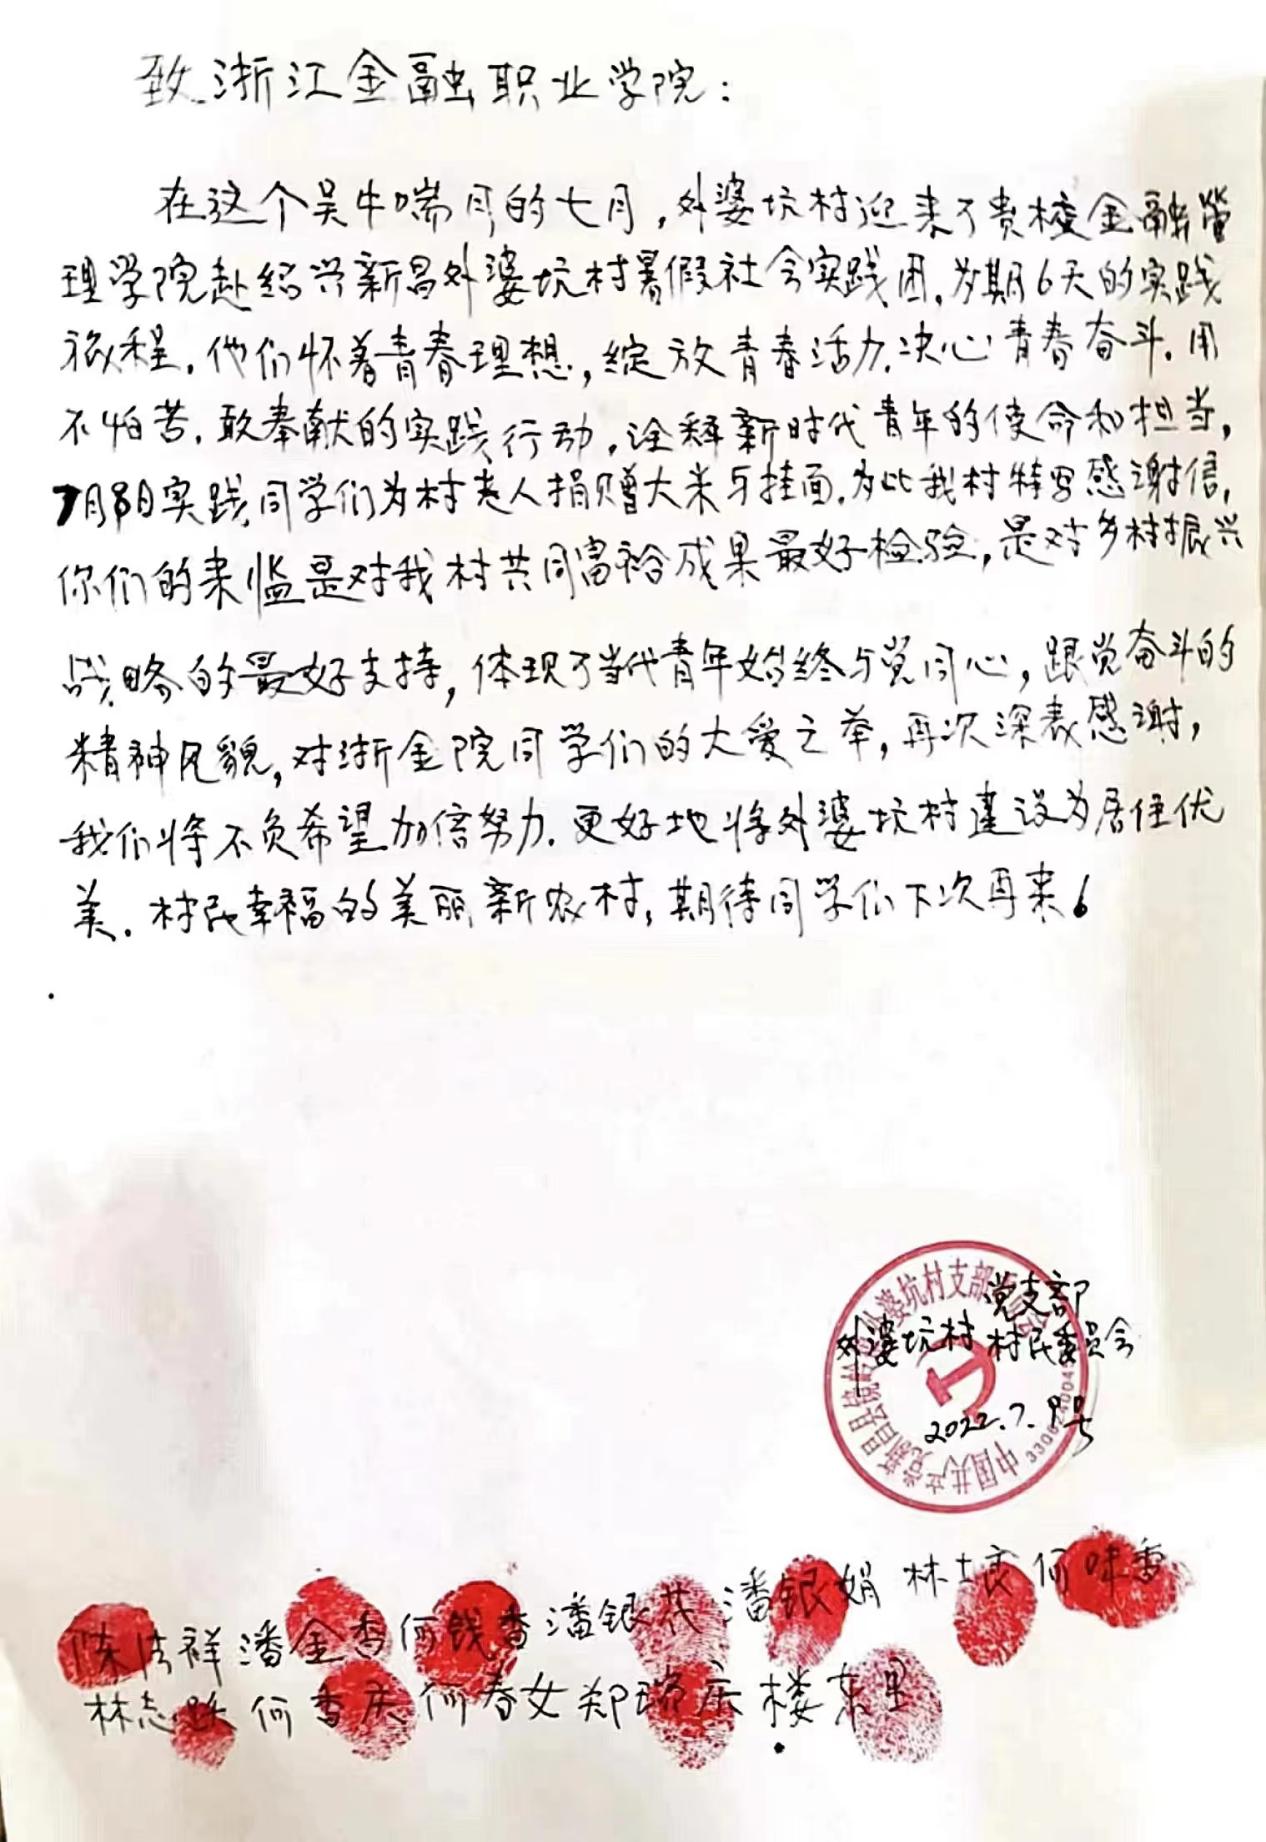 致浙江金融职业学院：
在这个吴牛喘月的七月，外婆坑村迎来了贵校金融管
理学院赴绍兴新昌外婆坑村暑假社会实践团，为期6天的实践
旅程。他们怀着青春理想，绽放青春活力.决心青春奋斗.用
不怕苦.敢奉献的实践行动，诠释新时代青年的使命和担当，
7月8日实践同学们为村老人捐赠大米与挂面.为此我村特写感谢信，
你们的来临是对我村共同富裕成果最好检验，是对乡村振兴
战略的最好支持，体现了当代青年始终与党同心，跟党奋斗的
精神风貌，对浙金院同学们的大爱之举，再次深表感谢，
我们将不负希望加倍努力.更好地将外婆坑村建设为居住优
美.村民幸福的美丽新农村，期待同学们下次再来。
党支部
外婆坑村 村民委员会
2022.7.9号
中国共产党新昌县镜岭镇外婆坑村支部委员会
陈 祥 潘金香 何钱香 潘银花 潘银娟 林士良 何味香
林志 何香庆 何春女 郑瑞庆 楼东里